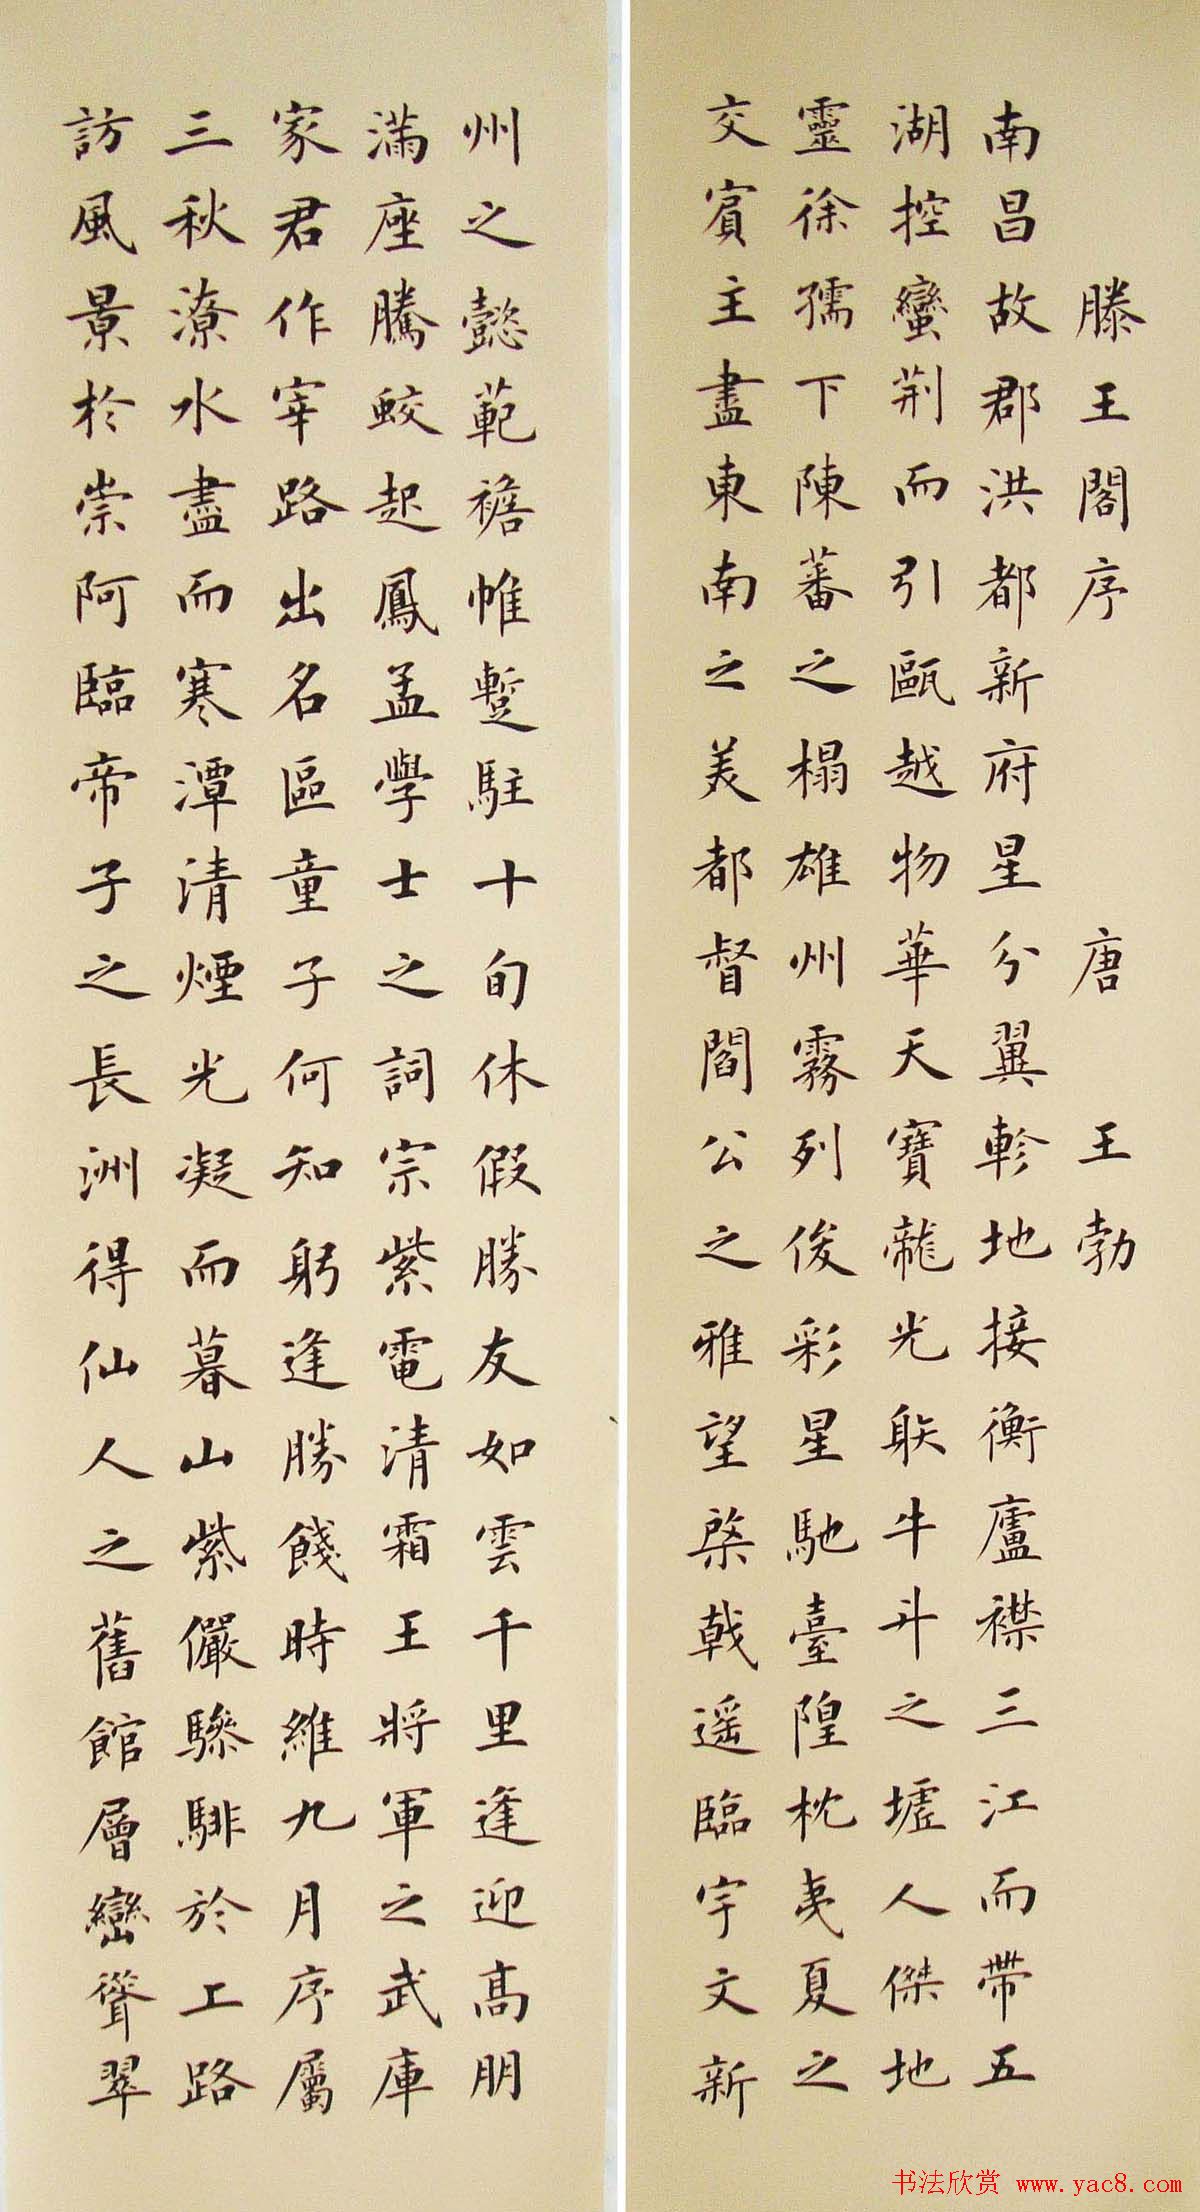 滕王閣序 唐 王勃
南昌故郡洪都新府星分翼軫地接衡廬襟三江而帶五
湖控蠻荆而引甌越物華天寶龍光䠶牛斗之墟人傑地
靈徐孺下陳蕃之榻雄州霧列俊彩星馳臺隍枕夷夏之
交賓主盡東南之美都督閻公之雅望棨戟遥臨宇文新
州之懿範襜帷蹔駐十旬休假勝友如雲千里逢迎高朋
滿座騰蛟起鳳孟學士之詞宗紫電清霜王將軍之武庫
家君作宰路出名區童子何知躬逢勝餞時維九月序屬
三秋潦水盡而寒潭清煙光凝而暮山紫儼驂騑於上路
訪風景於崇阿臨帝子之長洲得仙人之舊館層巒聳翠
书法欣赏 www.yac8.com